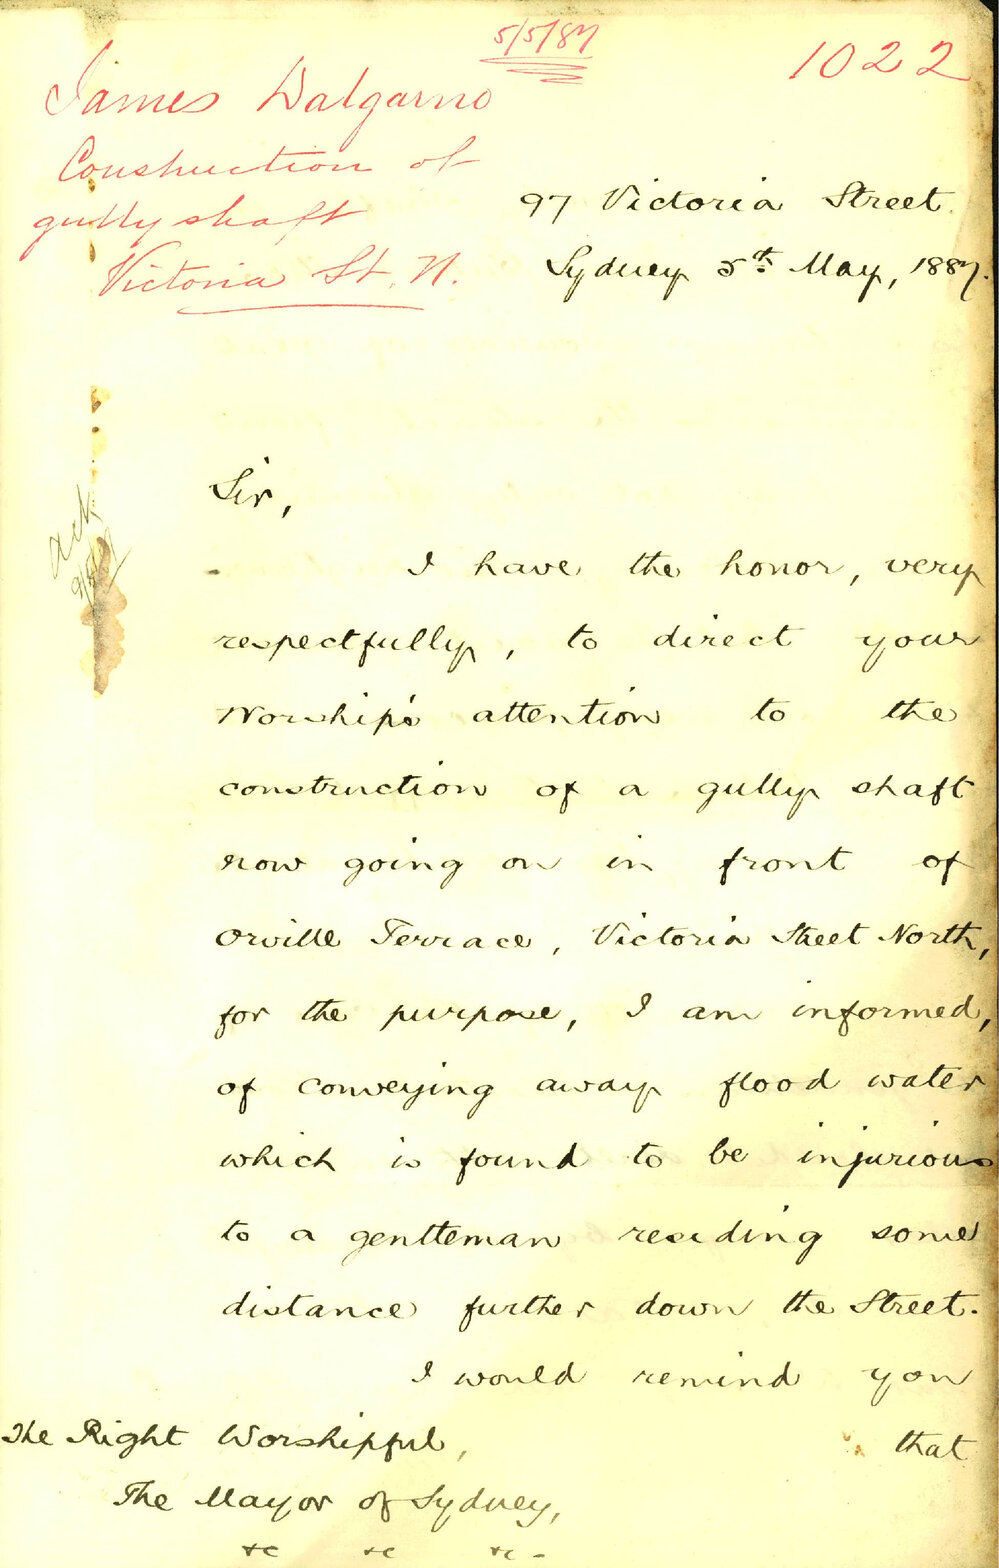 5/5/87
1022
James Dalgarno
Construction of
gully shaft
Victoria St. N.
97 Victoria Street.
Sydney 5th May, 1887.
Ack
9/5/87
Sir,
I have the honor, very
respectfully, to direct your
Worship's attention to the
construction of a gully shaft
now going on in front of
Orville Terrace, Victoria Street North,
for the purpose, I am informed,
of conveying away flood water
which is found to be injurious
to a gentleman residing some
distance further down the Street.
I would remind you
that
The Right Worshipful,
The Mayor of Sydney,
&c &c &c -